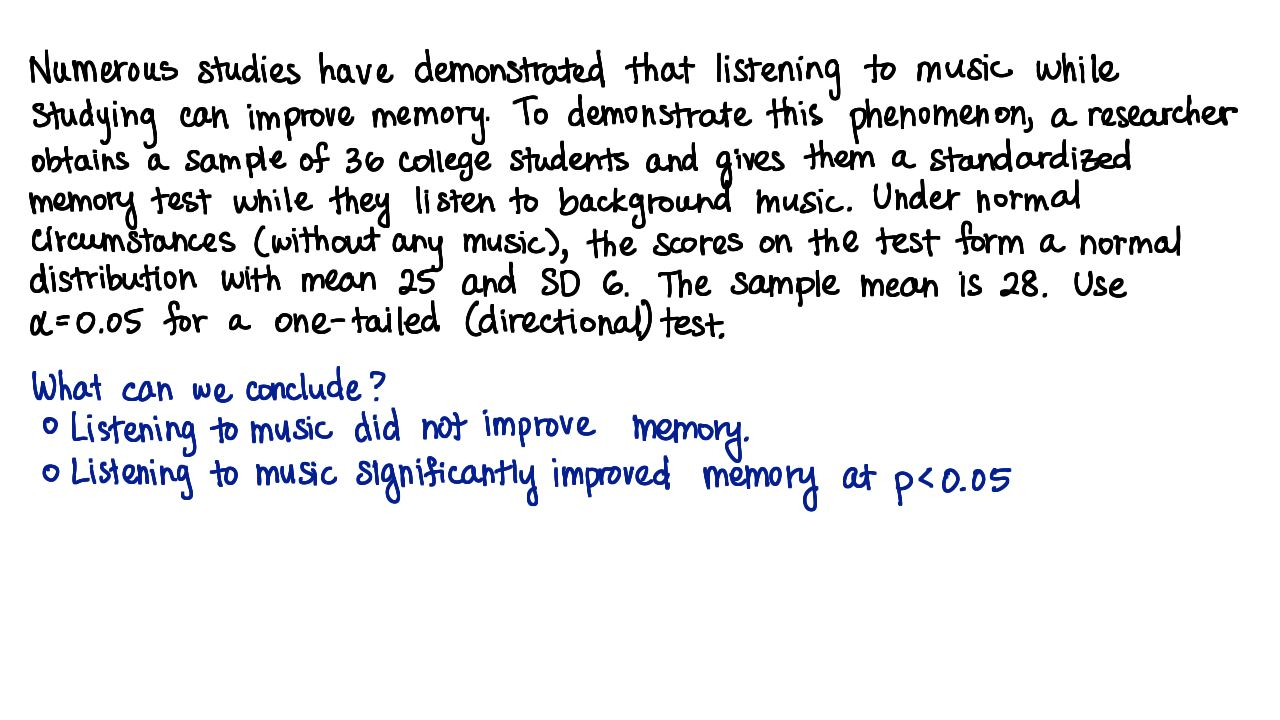 Numerous studies have demonstrated that listening to music while
studying can improve memory. To demonstrate this phenomenon, a researcher
obtains a sample of 36 college students and gives them a standardized
memory test while they listen to background music. Under normal
circumstances (without any music), the scores on the test form a normal
distribution with mean 25 and SD 6. The sample mean is 28. Use
α=0.05 for a one-tailed (directional) test.
What can we conclude?
○ Listening to music did not improve memory.
○ Listening to music significantly improved memory at p<0.05